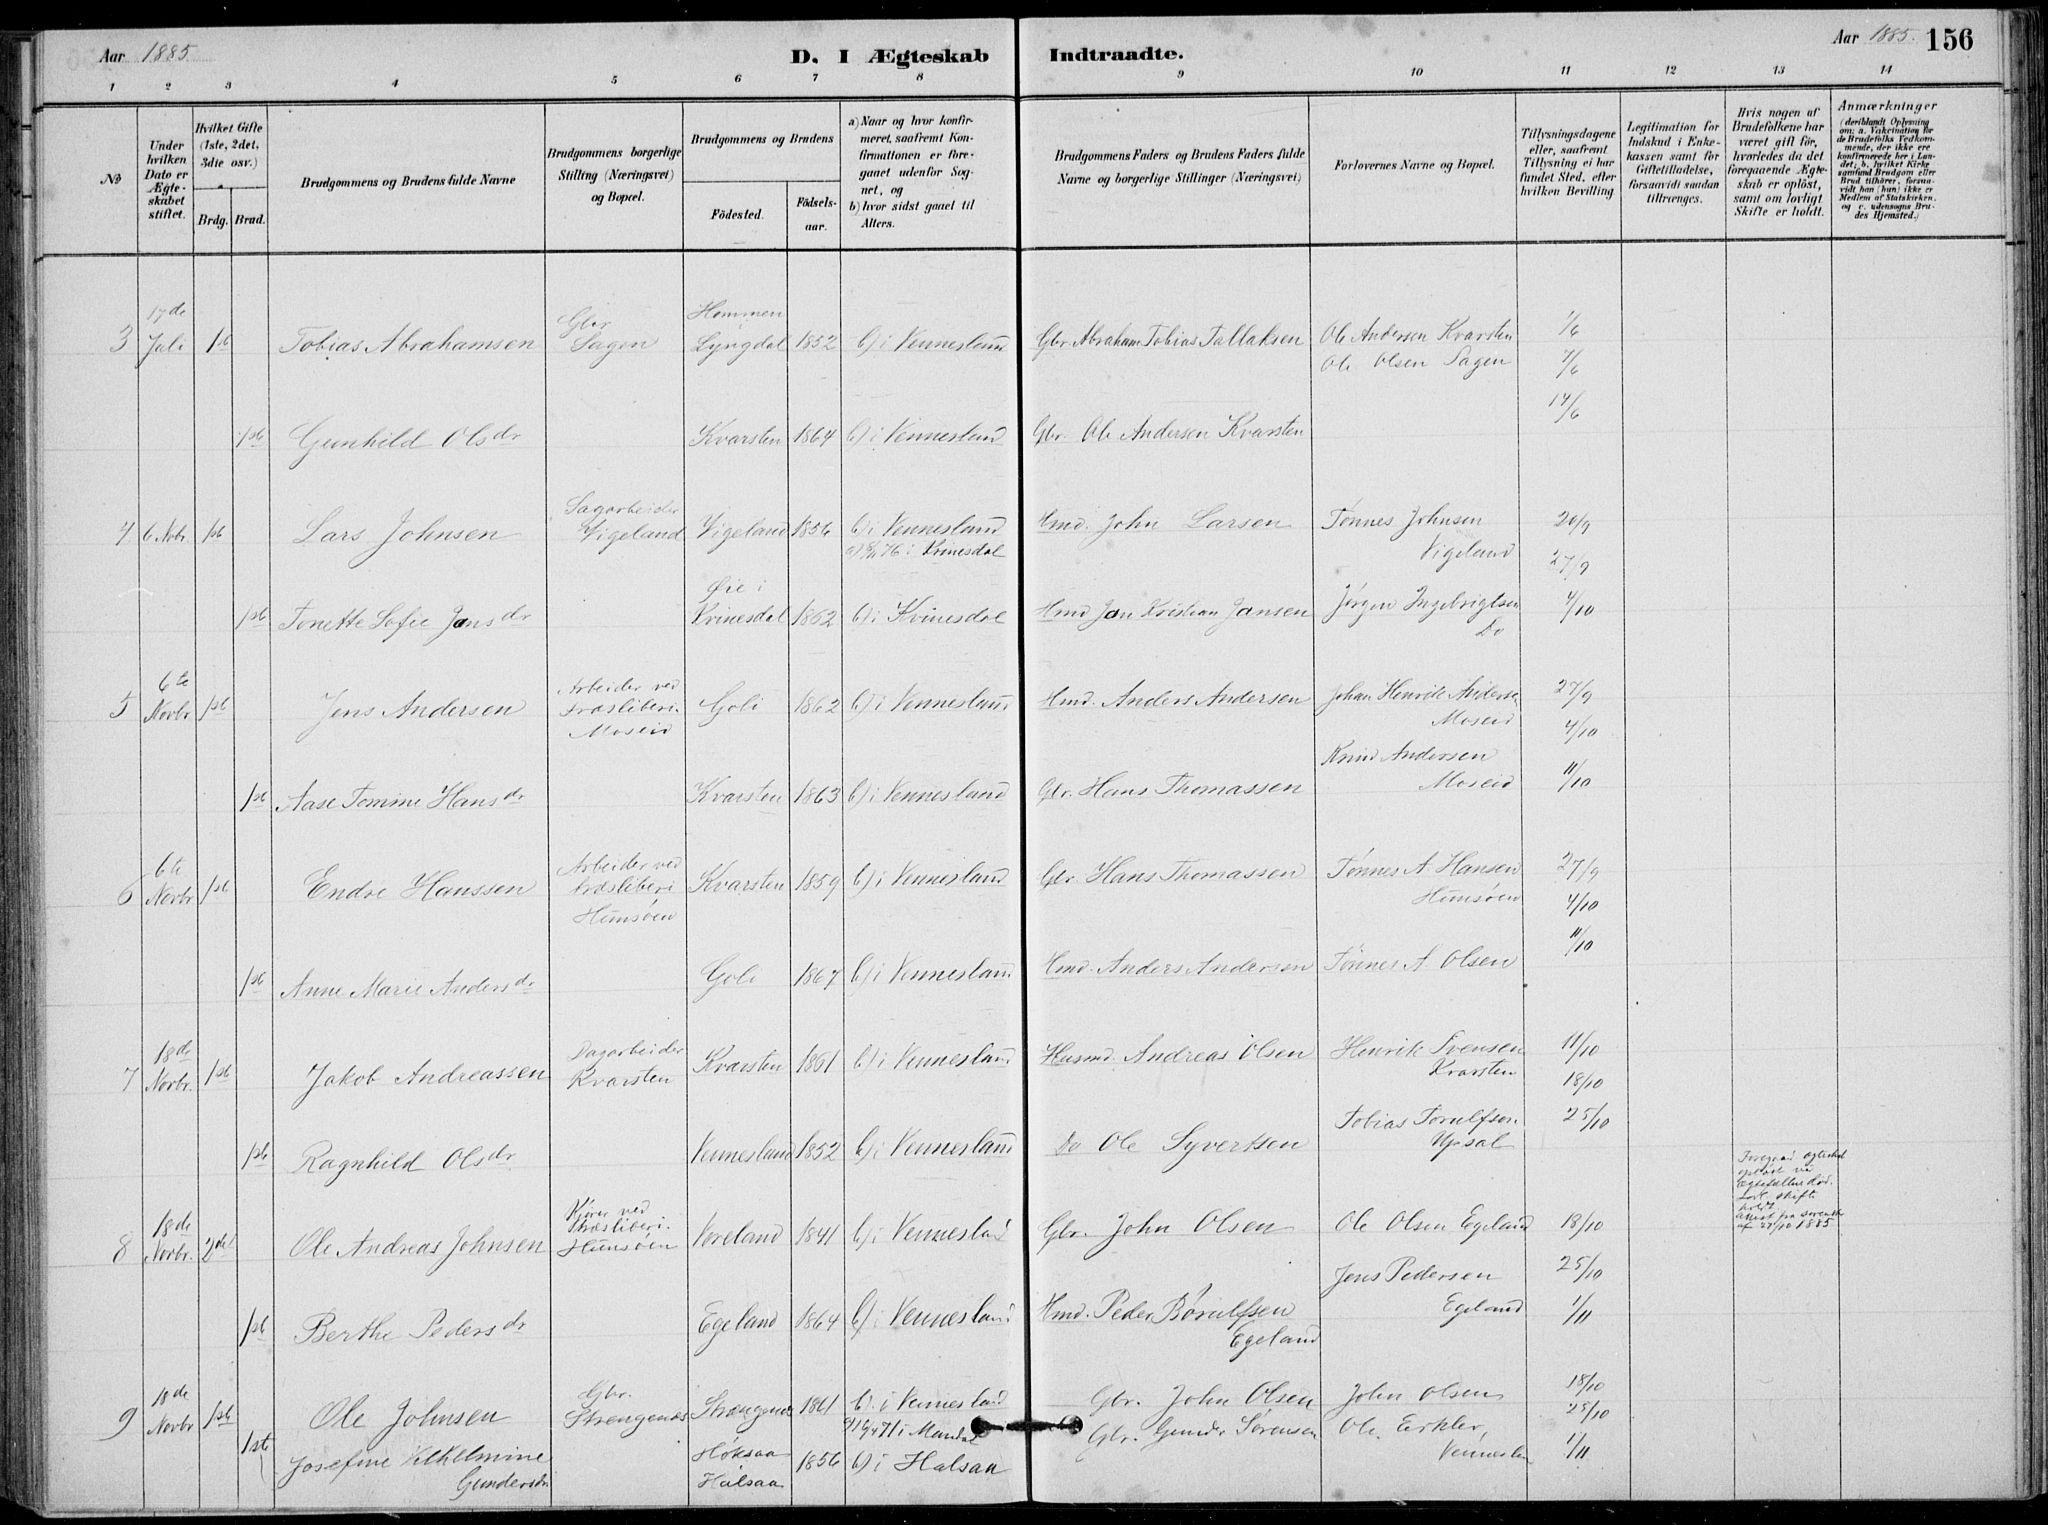 Aar 1885
D. I Ægteskab Indtraadte.
Aar 1885. 156
1 2 3 4 5 6 7 8 9 10 11 12 13 14
No
Under hvilken Dato er Ægteskabet stiftet.
Hvilket Gifte (1ste, 2det, 3die osv.)
Brdg. Brud.
Brudgommens og Brudens fulde Navne
Brudgommens borgerlige Stilling (Næringsvei) og Bopæl.
Brudgommens og Brudens
Födested. Födsels-aar.
a) Naar og hvor konfirmeret, saafremt Konfirmationen er foregaaet udenfor Sognet, og
b) hvor sidst gaaet til Alters.
Brudgommens Faders og Brudens Faders fulde Navne og borgerlige Stillinger (Næringsvei)
Forlovernes Navne og Bopæl.
Tillysningsdagene eller, saafremt Tillysning ei har fundet Sted, efter hvilken Bevilling
Legitimation for Indskud i Enkekassen samt for Giftetilladelse, forsaavidt saadan tiltrænges.
Hvis nogen af Brudefolkene har været gift för, hvorledes da det foregaaende Ægteskab er oplöst, samt om lovligt Skifte er holdt.
Anmærkninger (deriblandt Oplysning om: a. Vakcination for de Brudefolks Vedkommende, der ikke ere konfirmerede her i Landet; b. hvilket Kirkesamfund Brudgom eller Brud tilhörer, forsaavidt han (hun) ikke er Medlem af Statskirken. og c. udensogns Brudes Hjemsted.)
3 17de Juli 1st Tobias Abrahamsen Gbr Sagen Hommen Lyngdal 1852 b) i Vennesland Gbr Abraham Tobias Tallaksen Ole Andersen Kvarsten Ole Olsen Sagen 1/6 7/6 14/6
1st Gunhild Olsdr Kvarsten 1864 b) i Vennesland Gbr. Ole Andersen Kvarsten
4 6 Nobr 1st Lars Johnsen Sagarbeider Vigeland Vigeland 1856 b) i Vennesland Hmd. John Larsen Tønnes Johnsen Vigeland 20/9 27/9
1st Tonette Sofie Jansdr Øie i Kvinesdal 1862 76 i Kvinesdal b) i Kvinesdal Hmd Jan Kristian Jansen Jørgen Ingebrigtsen Do 4/10
5 6te Novbr 1st Jens Andersen Arbeider ved Træsliberi. Moseid Goli 1862 b) i Vennesland Hmd. Anders Andersen Johan Henrik Andersen Moseid 27/9 4/10
1st Aase Tomine Hansdr Kvarsten 1863 b) i Vennesland Gbr. Hans Thomassen Knud Andersen Moseid 11/10
6 6te Novbr 1st Endre Hanssen Arbeider ved træsliberi Hunsøen Kvarsten 1859 b) i Vennesland Gbr. Hans Thomassen Tønnes A. Hansen Hunsøen 27/9 4/10
1st Anne Marie Andersdr Goli 1867 b) i Vennesland Hmd. Anders Andersen Tønnes A. Olsen 11/10
7 18de Novbr. 1st Jakob Andreassen Dagarbeider Kvarsten Kvarsten 1861 b) i Vennesland Husmd. Andreas Olsen Henrik Svensen Kvarsten 11/10 18/10
1st Ragnhild Olsdr Vennesland 1852 b) i Vennesland Do Ole Syvertsen Tobias Torulfsen Upsal 25/10
8 18de Novbr. 2det Ole Andreas Johnsen Kjører ved Træsliberi. Hunsøen Voreland 1841 b) i Vennesland Gbr. John Olsen Ole Olsen Egeland 18/10 Foregaa ægteskab opløst ved Ægtefælles død. skifte holdt Attest fra sorensk af 27/10 1885
1st Berthe Pedersdr Egeland 1864 b) i Vennesland Hmd. Peder Børulfsen Egeland Jens Pedersen Egeland 25/10 1/11
9 18de Novbr 1st Ole Johnsen Gbr. Strengenæs Strængenæs 1861 b) i Vennesland Gbr. John Olsen John Olsen 18/10 25/10
1st Josefine Vilhelmine Gundersdr Høksaa Halsaa 1856 71 i Mandal b) i Halsaa Gbr. Gunder Sørensen Ole Erkler, Vennesla 1/11